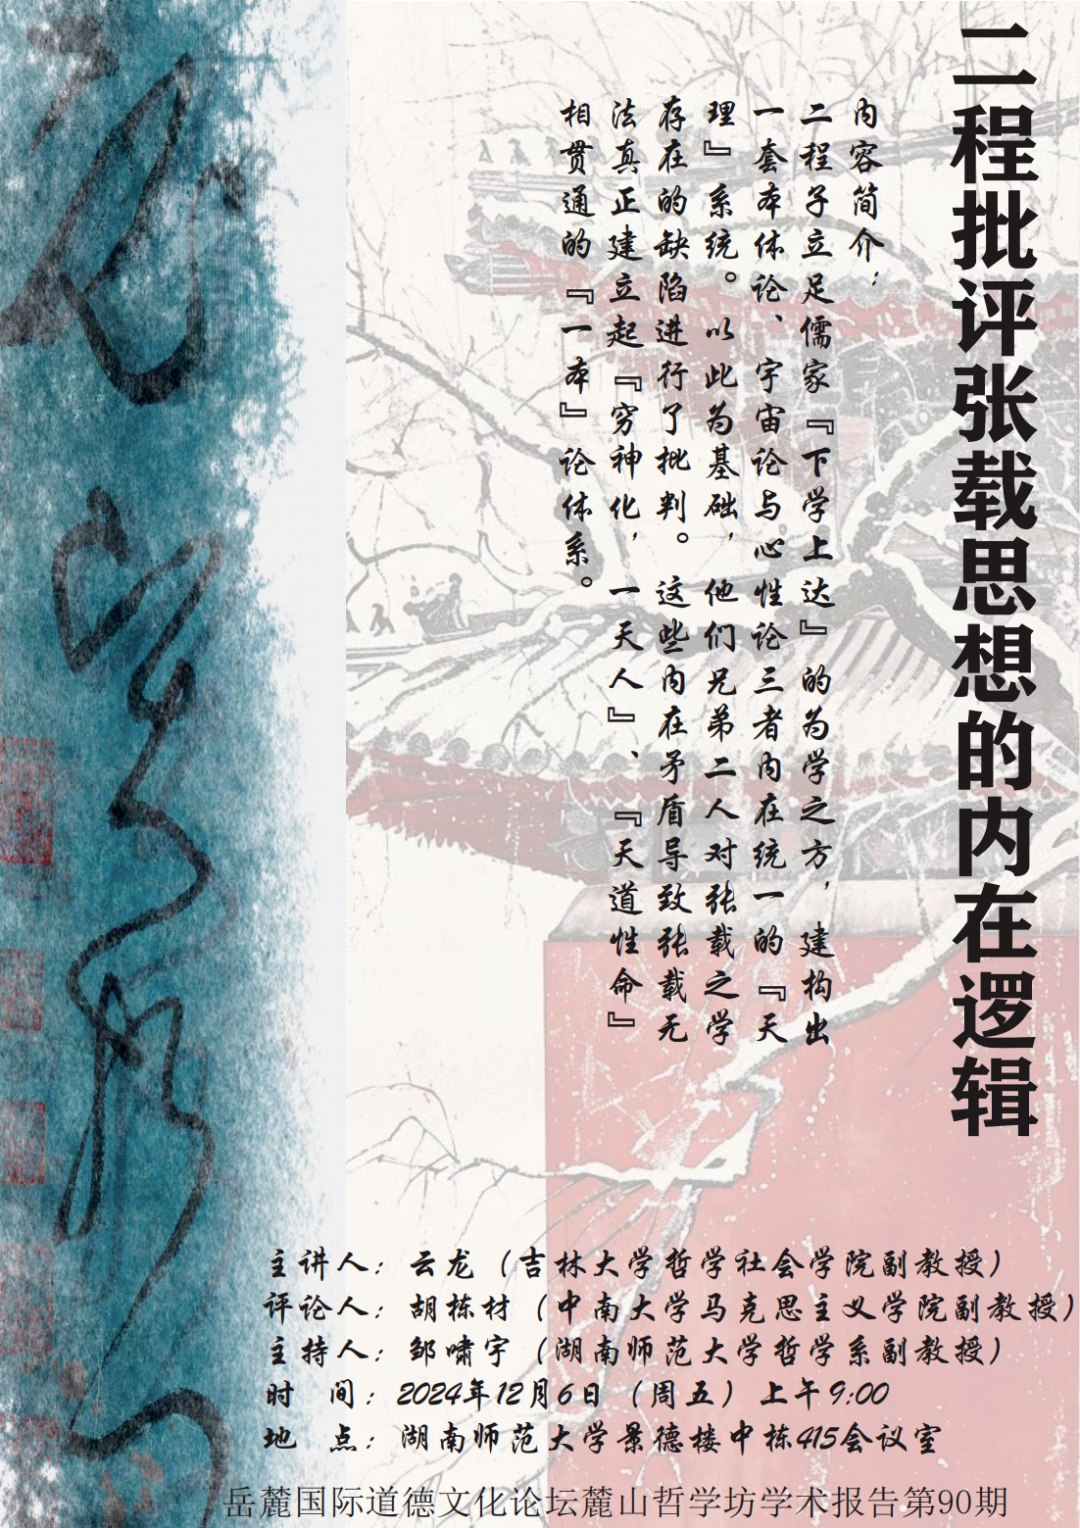 二程批评张载思想的内在逻辑
内容简介：
二程子立足儒家『下学上达』的为学之方，建构出
一套本体论、宇宙论与心性论三者内在统一的『天
理』系统。以此为基础，他们兄弟二人对张载之学
存在的缺陷进行了批判。这些内在矛盾导致张载无
法真正建立起『穷神化，一天人』、『天道性命』
相贯通的『一本』论体系。
主讲人：云龙（吉林大学哲学社会学院副教授）
评论人：胡栋材（中南大学马克思主义学院副教授）
主持人：邹啸宇（湖南师范大学哲学系副教授）
时 间：2024年12月6日（周五）上午9:00
地 点：湖南师范大学景德楼中栋415会议室
岳麓国际道德文化论坛麓山哲学坊学术报告第90期